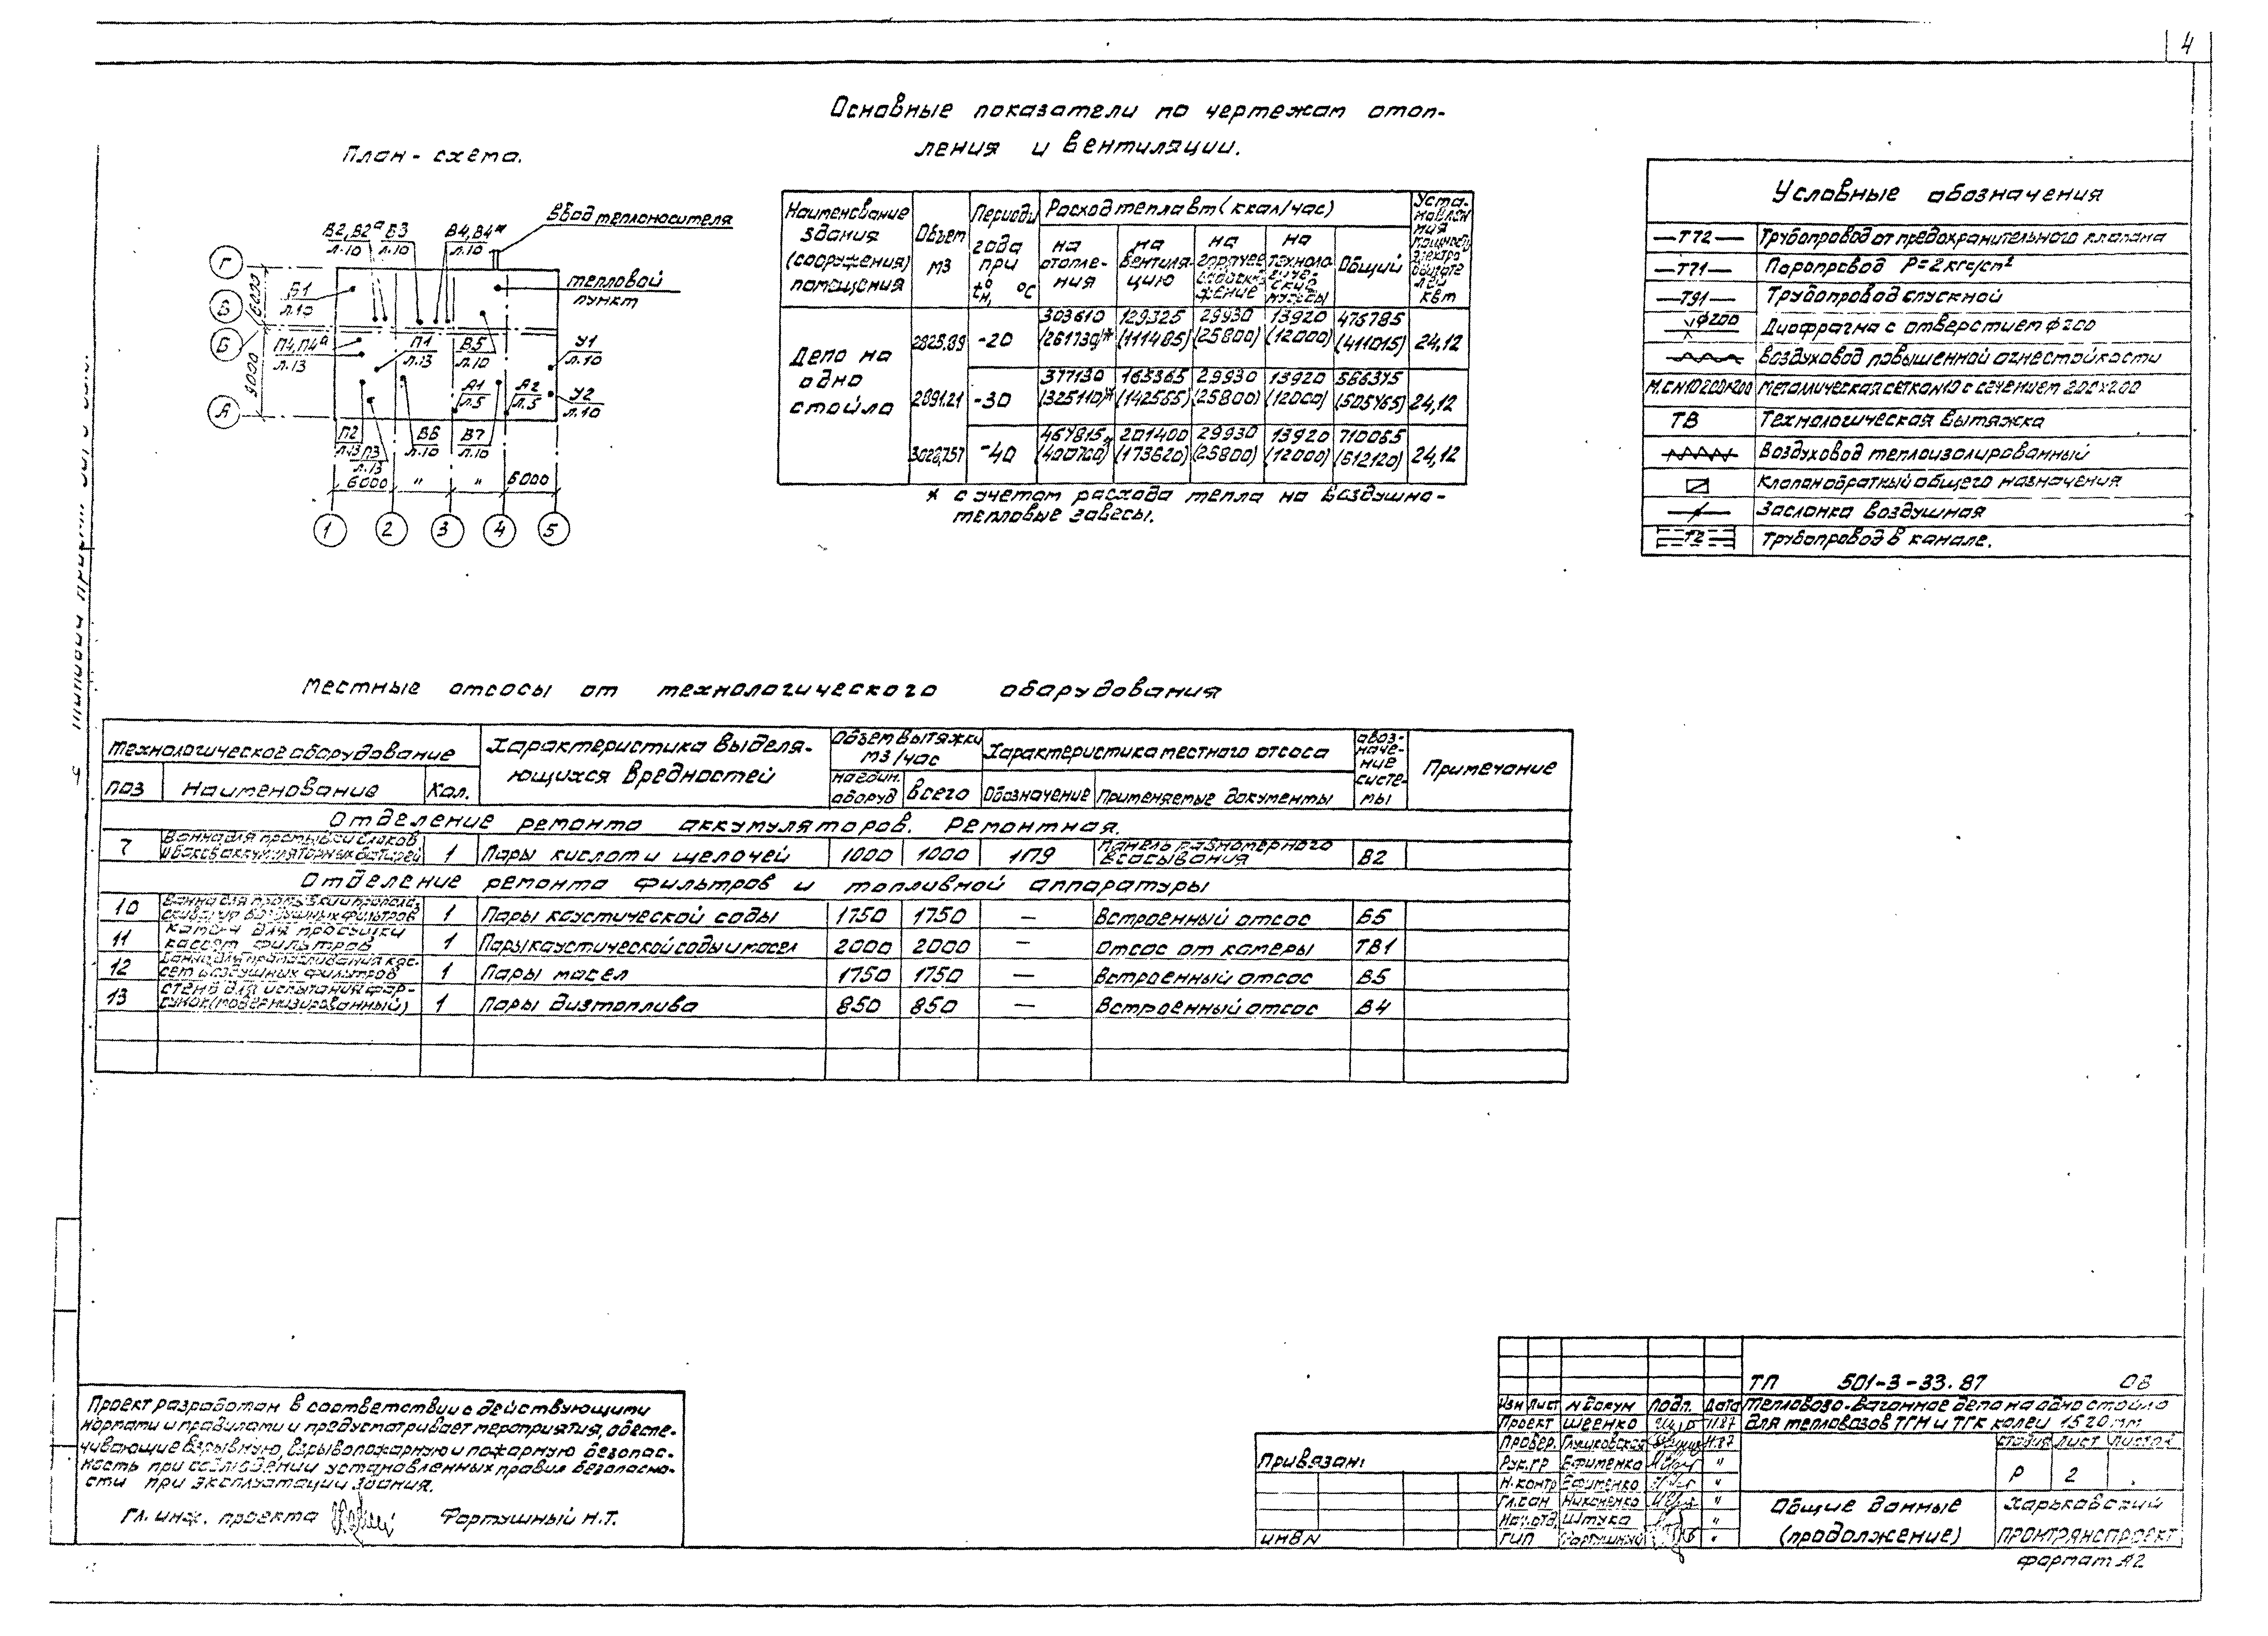 4
Основные показатели по чертежам отоп-
ления и вентиляции.
План-схема.
Ввод теплоносителя
В2, В2а В3 В4, В4а
л.10 л.10 л.10
тепловой
пункт
В1
л.10
П4, П4а П1 В5 У1
л.13 л.13 л.10 л.10
А1 А2 У2
л.5 л.5 л.10
П2 П3 В6 В7
л.13 л.13 л.10 л.10
Г
В
Б
А
6000
9000
6000 " " 6000
1 2 3 4 5
Наименование здания (сооружения) помещения
Объем м3
Периоды года при tн, °С
Расход тепла вт (ккал/час)
на отопле-ния
на вентиля-цию
на горячее
на техноло-
Общий
Уста-
квт
Депо на одно стойло
2825,89 -20 303610 129325 29930 13920 476785 24,12
(261730)* (111485) (25800) (12000) (411015)
2891,21 -30 377130 165365 29930 13920 586345 24,12
(325110)* (142555) (25800) (12000) (505465)
3028,757 -40 464815 201400 29930 13920 710065 24,12
(400700)* (173620) (25800) (12000) (612120)
* с учетом расхода тепла на воздушно-
тепловые завесы.
Условные обозначения
—Т72— Трубопровод от предохранительного клапана
—Т71— Паропровод Р=2кгс/см²
—Т91— Трубопровод спускной
ф200 Диафрагма с отверстием ф200
Воздуховод повышенной огнестойкости
М.С.N10 200×200 Металлическая сетка N10 с сечением 200×200
ТВ Технологическая вытяжка
Воздуховод теплоизолированный
Клапан обратный общего назначения
Заслонка воздушная
Т2 Трубопровод в канале.
Местные отсосы от технологического оборудования
Технологическое оборудование
Характеристика выделя-
ющихся вредностей
Объем вытяжки
м3/час
Характеристика местного отсоса
Обоз-
наче-
ние
систе-
мы
Примечание
поз Наименование Кол.
на един.
оборуд
всего Обозначение Применяемые документы
Отделение ремонта аккумуляторов. Ремонтная.
7 Ванна для промывки блоков
и баков аккумуляторных батарей 1 Пары кислот и щелочей 1000 1000 1П9 Панель равномерного
всасывания В2
Отделение ремонта фильтров и топливной аппаратуры
10 1 Пары каустической соды 1750 1750 — Встроенный отсос В5
11 для просушки
кассет фильтров 1 Пары каустической соды и масел 2000 2000 — Отсос от камеры ТВ1
12 Ванна для промасливания кас-
сет воздушных фильтров 1 Пары масел 1750 1750 — Встроенный отсос В5
13 Стенд для испытания фор-
сунок (модернизированный) 1 Пары дизтоплива 850 850 — Встроенный отсос В4
Проект разработан в соответствии с действующими
нормами и правилами и предусматривает мероприятия, обеспе-
чивающие взрывную, взрывопожарную и пожарную безопас-
ность при соблюдении установленных правил безопасно-
сти при эксплуатации здания.
Гл. инж. проекта Фортушный Н.Т.
Привязан:
ИНВ N
ТП 501-3-33.87 ОВ
Изм Лист N докум Подп. Дата
Тепловозо-вагонное депо на одно стойло
для тепловозов ТГМ и ТГК колеи 1520 мм
Проект Шеенко 11.87
Провер. Глушковская 11.87
Рук.гр Ефименко "
Н.контр Ефименко "
Гл.сан Никоненко "
Нач.отд Штука "
ГИП Фортушный "
стадия лист листов
Р 2
Общие данные
(продолжение)
Харьковский
ПРОМТРАНСПРОЕКТ
формат А2